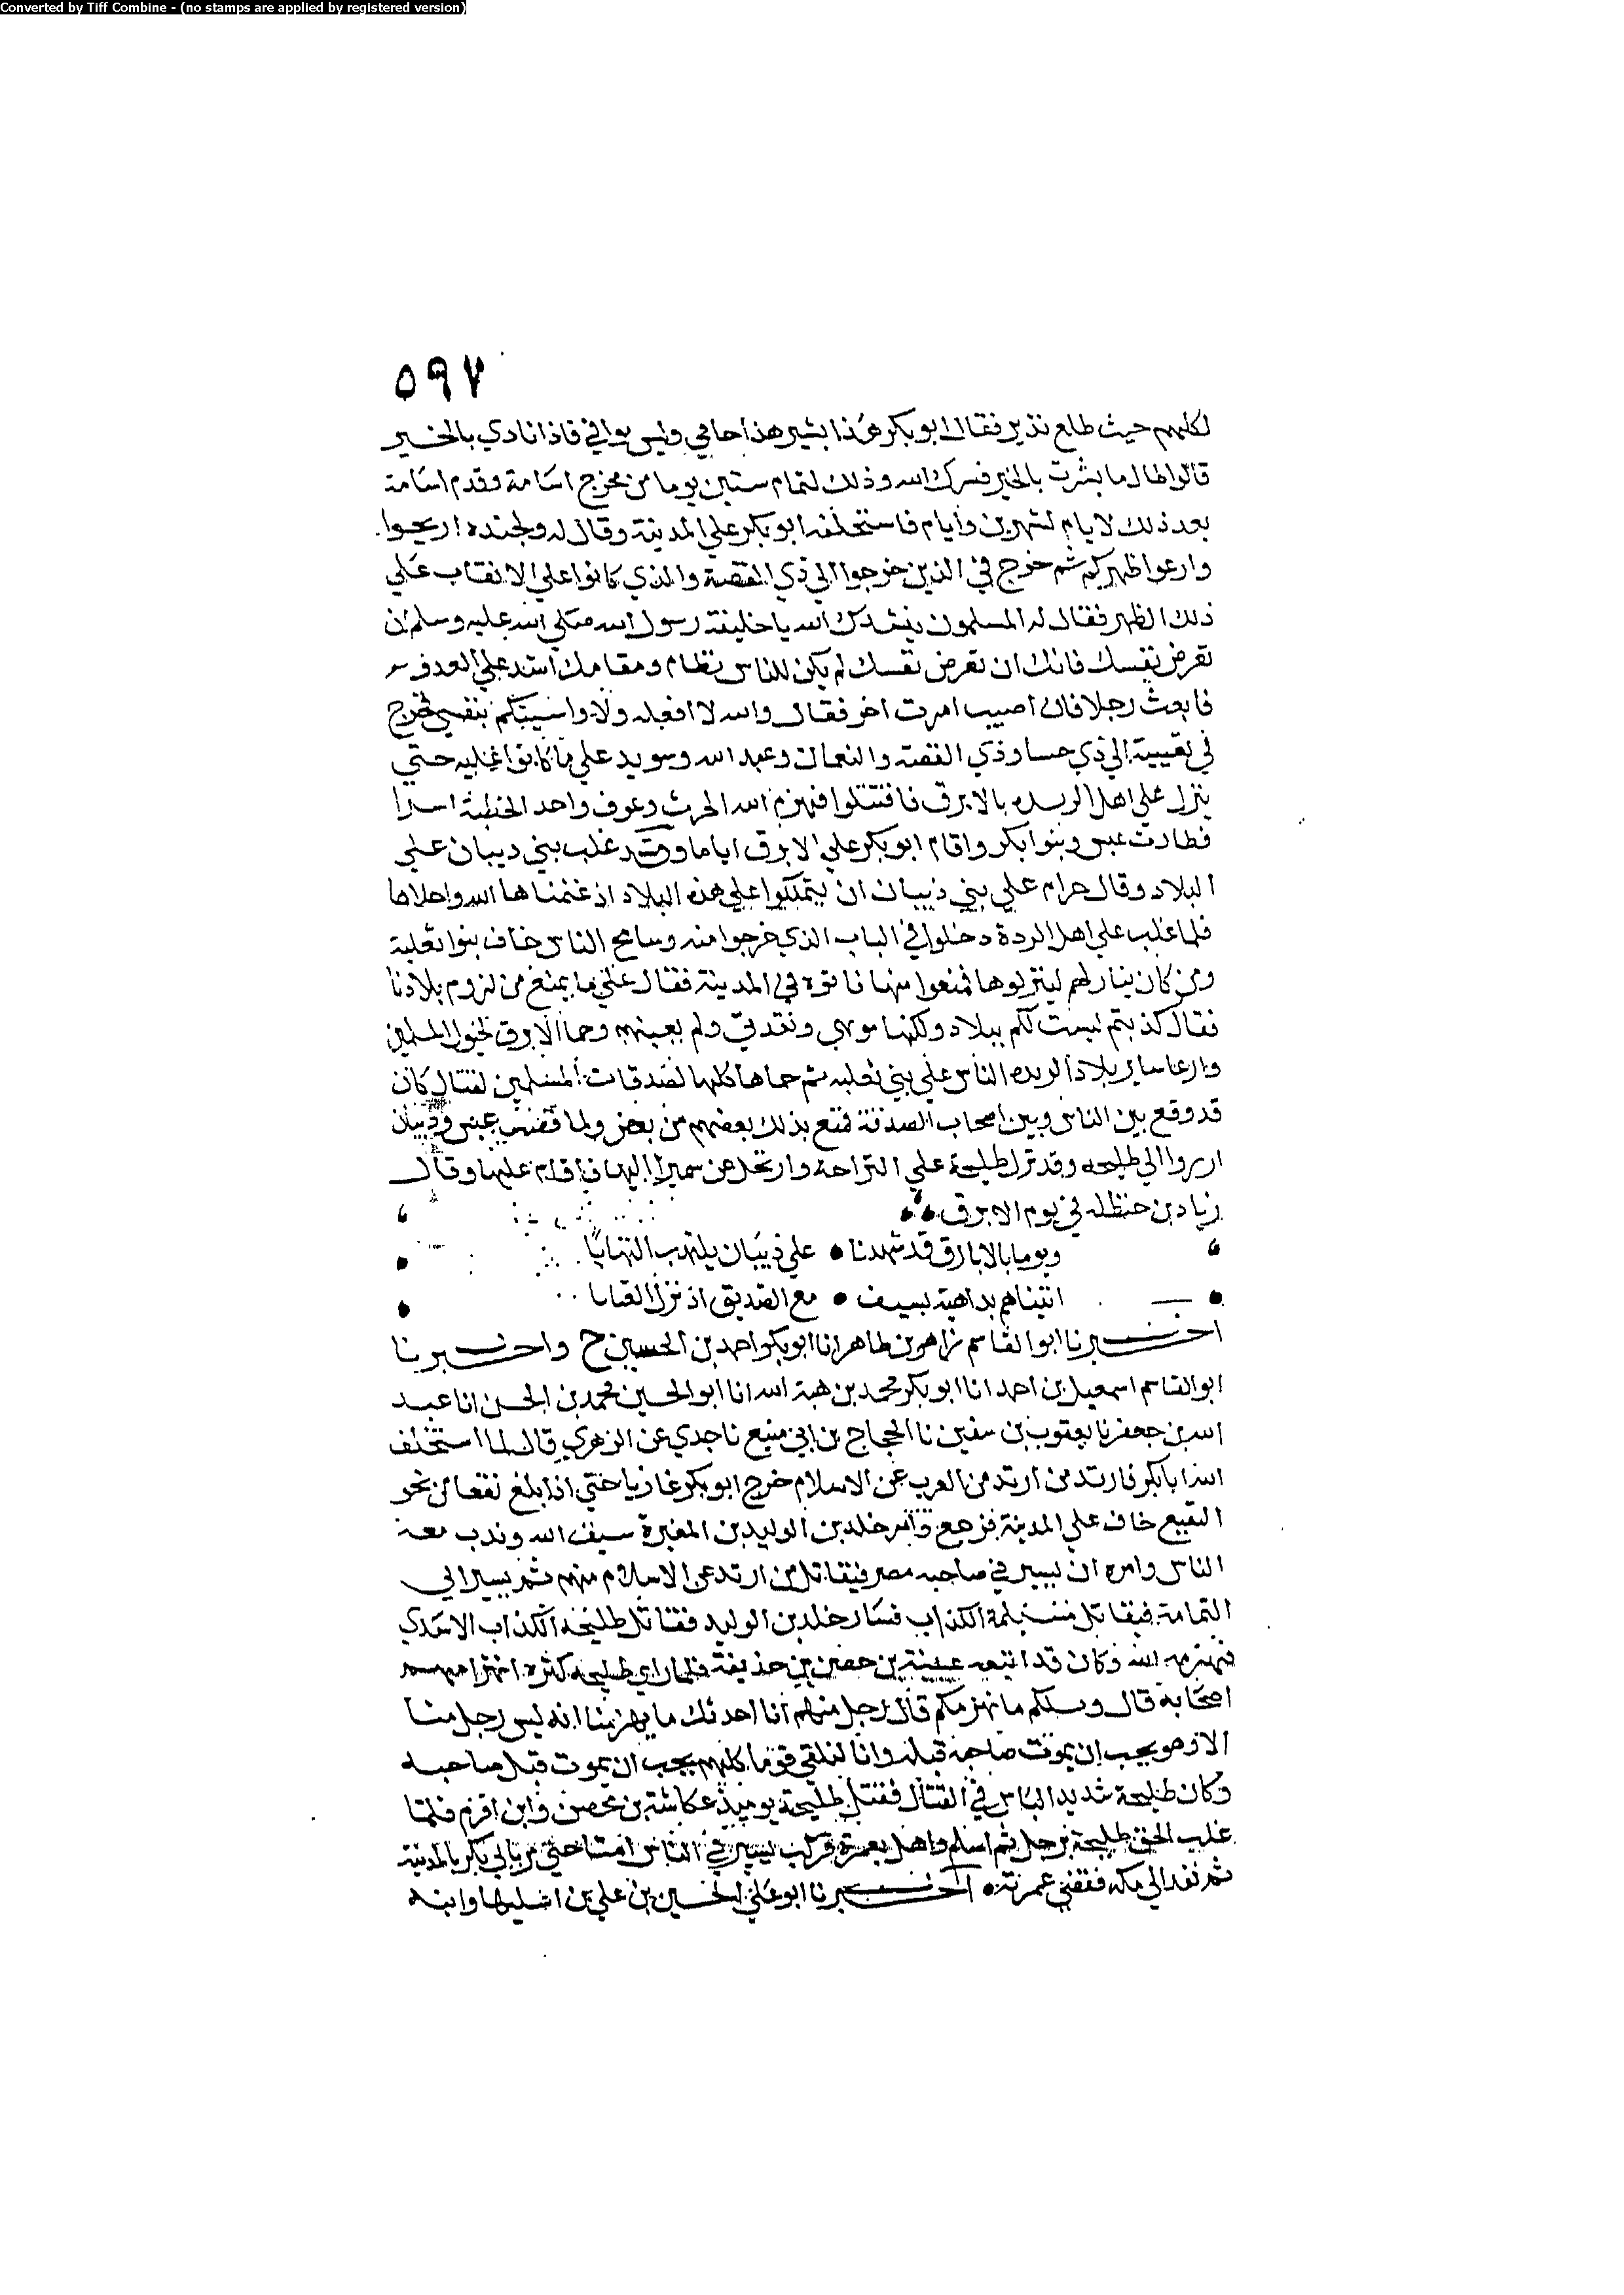 Converted by Tiff Combine - (no stamps are applied by registered version)
٥٩٧
لكلهم حيث طلع نذير فقال ابو بكر هذا بشير هذا حامي وليس بواني فاذا نادي بالخير
قالوا طال ما بشرت بالخير فسرك الله وذلك لتمام ستين يوما من مخرج اسامة وقدم اسامة
بعد ذلك لايام لشهرين وأيام فاستخلفه ابو بكر علي المدينة وقال له ولجنده اريحوا
وارعوا ظهركم ثم خرج في الذين خرجوا الي ذي القصة والذي كانوا علي الانقاب علي
ذلك الظهر فقال له المسلمون ينشدك الله يا خليفة رسول الله صلي الله عليه وسلم ان
تعرض نفسك فانك ان تعرض نفسك لم يكن للناس نظام ومقامك اشد علي العدو
فابعث رجلا فان اصيب امرت اخر فقال والله لا افعله ولاواسينكم بنفسي فخرج
في تعبيته الي ذي حسا وذي القصة والنعمان وعبد الله وسويد علي ما كانوا عليه حتي
ينزل علي اهل الربده بالابرق فاقتتلوا فهزم الله الحرث وعوف واخذ الحطية اسيرا
فطارت عبس وبنوا بكر واقام ابو بكر علي الابرق اياما وقد غلب بني ديبان علي
البلاد وقال حرام علي بني ذيبان ان يتملكوا علي هذه البلاد اذ غنمناها الله واجلاها
فلما غلب علي اهل الردة دخلوا في الباب الذي خرجوا منه وسامح الناس خاف بنوا ثعلبة
ومن كان ينازلهم لينزلوها فمنعوا منها فاتوه في المدينة فقال علي ما يمنع من لزوم بلادنا
فقال كذبتم ليست لكم ببلاد ولكنها موهبي ونقذتي ولم يعبهم وحما الابرق لخيول المسلمين
وارعا ساير بلاد الربده الناس علي بني ثعلبه ثم حماها كلها لصدقات المسلمين لقتال كان
قد وقع بين الناس وبين اصحاب الصدقة فمنع بذلك بعضهم من بعض ولما فضت عبس وذبيان
ارزوا الي طليحه وقد نزل طليحة علي البزاخة وارتحل عن سميرا اليها فاقام عليها وقال
زياد بن حنظله في يوم الابرق
ويوما بالابارق قد شهدنا • علي ذبيان يلتهب التهابا
اتيناهم بداهية بسيف • مع الصديق اذ نزل القبابا
اخبرنا ابو القاسم زاهر بن طاهر انا ابو بكر احمد بن الحسين ح واخبرنا
ابو القاسم اسمعيل بن احمد انا ابو بكر محمد بن هبة الله انا ابو الحسين محمد بن الحسن انا عبد
الله بن جعفر نا يعقوب بن سفين نا الحجاج بن ابي منيع نا جدي عن الزهري قال لما استخلف
الله ابا بكر فارتد من ارتد من العرب عن الاسلام خرج ابو بكر غازيا حتي اذا بلغ نقعا من نحو
النقيع خاف علي المدينة فرجع وأمر خلد بن الوليد بن المغيرة سيف الله وندب معه
الناس وامره ان يسير في ضاحيه مصر فيقاتل من ارتد عن الاسلام منهم ثم يسير الي
اليمامة فيقاتل مسيلمة الكذاب فسار خلد بن الوليد فقاتل طليحة الكذاب الاسدي
فهزمه الله وكان قد اتبعه عيينة بن حصن بن حذيفة فلما راي طليحه كثرة انهزام
اصحابه قال ويلكم ما نهزمكم قال رجل منهم انا احدثك ما يهزمنا انه ليس رجل منا
الا وهو يحب ان يموت صاحبه قبله وانا لنلقي قوما كلهم يحب ان يموت قبل صاحبه
وكان طليحة شديد الباس في القتال فقتل طليحة يوميذ عكاشة بن محصن وابن اقرم فلما
غلب الحق طليحة ترجل ثم اسلم واهل بعمرة فركب يسير في الناس امنا حتي مر بابي بكر بالمدينة
ثم نفذ الي مكه فقضي عمرته • اخبرنا ابو علي الحسين بن علي بن اشليها وابنه